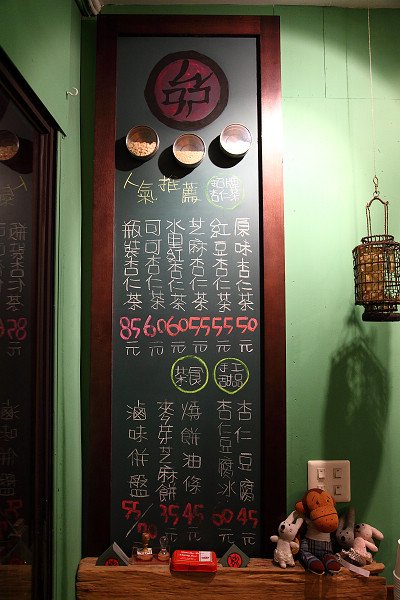 人氣推薦
原味杏仁茶 50元
紅豆杏仁茶 55元
芝麻杏仁茶 55元
水果紅杏仁茶 60元
可可杏仁茶 60元
瓶裝杏仁茶 85元
茶食
手工甜品
杏仁豆腐 45元
杏仁豆腐冰 60元
燒餅油條 45元
麥芽芝麻餅 35元
滷味併盤